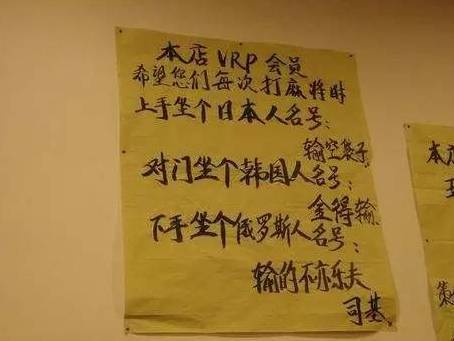 本店VRP会员
希望您们每次打麻将时
上手坐个日本人名号:
输空袋子
对门坐个韩国人名号:
金得输
下手坐个俄罗斯人名号:
输的不亦乐夫
司基
本店